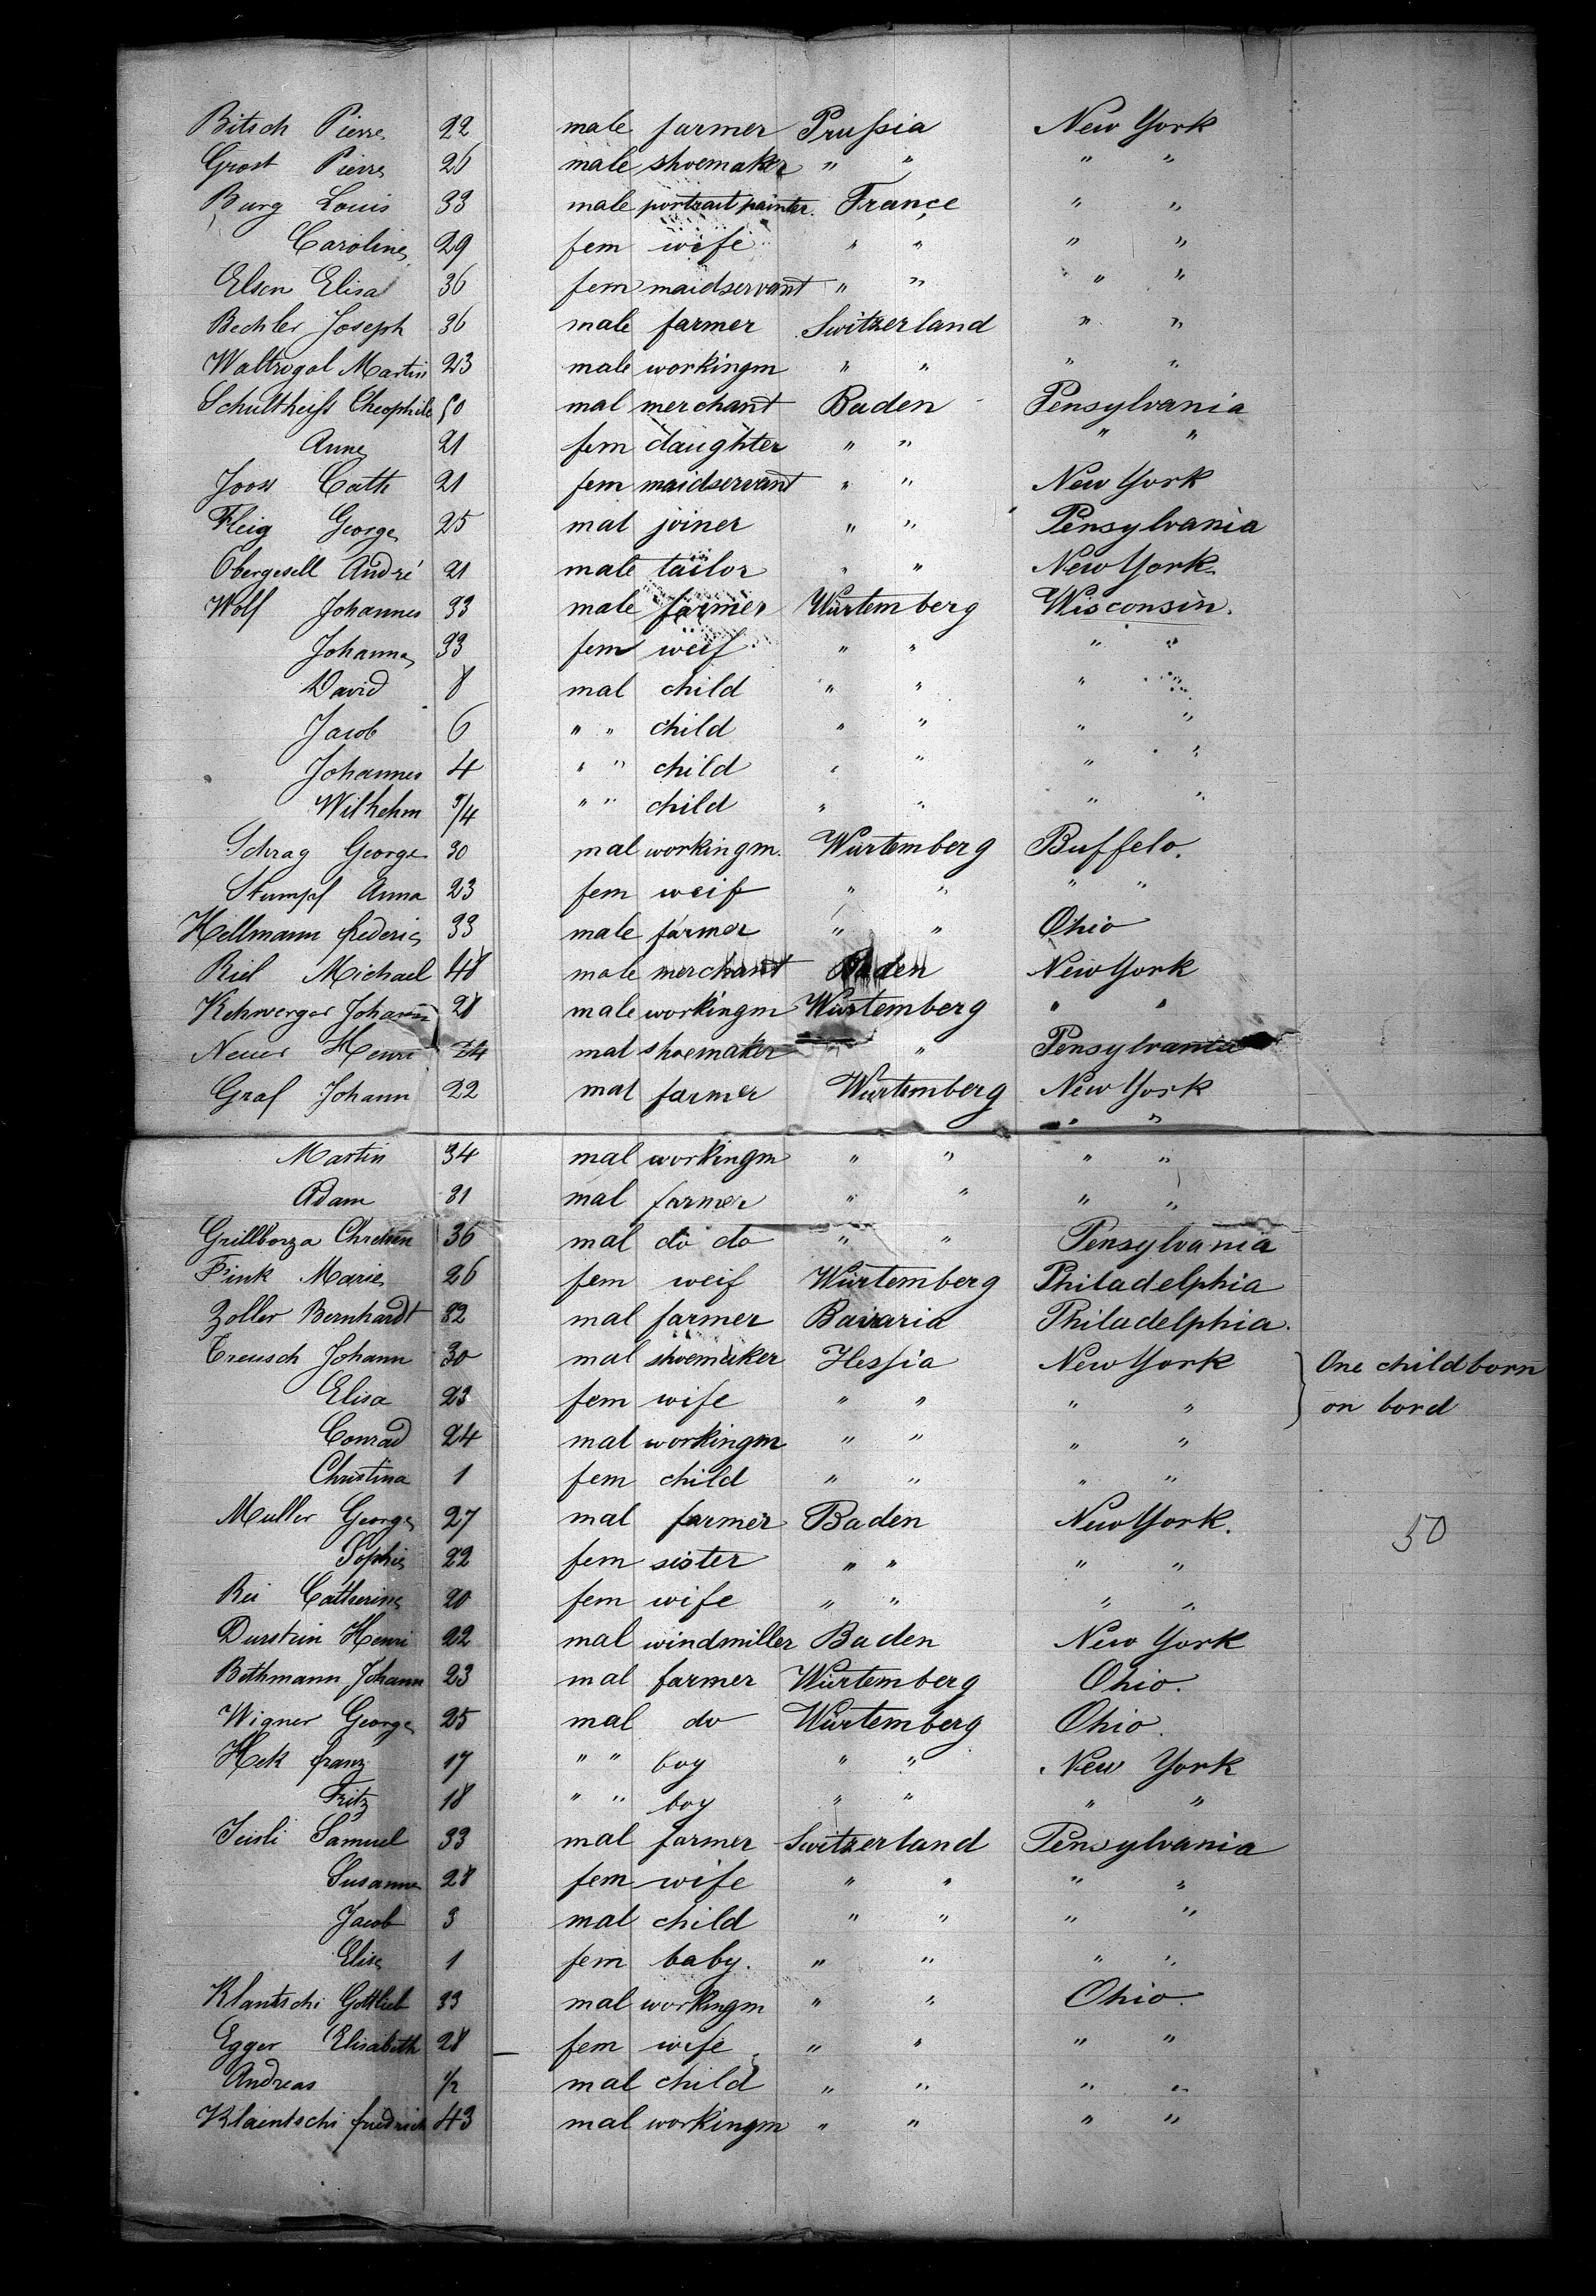 Bitsch Pierre 22 male farmer Prussia New York
Grost Pierre 26 male shoemaker " " " "
Burg Louis 33 male portrait painter. France " "
Caroline 29 fem wife " " " "
Elsen Elisa 36 fem maidservant " " " "
Bechler Joseph 36 male farmer Switzerland " "
Waltvogel Martin 23 male workingm " " " "
Schultheiss Theophile 50 mal merchant Baden Pensylvania
Anne 21 fem daughter " " " "
Joos Cath 21 fem maidservant " " New York
Fleig George 25 mal joiner " " Pensylvania
Obergesell André 21 male tailor " " New York
Wolf Johannes 33 male farmer Würtemberg Wisconsin.
Johanna 33 fem weif " " " "
David 8 mal child " " " "
Jacob 6 " " child " " " "
Johannes 4 " " child " " " "
Wilhehm 9/4 " " child " " " "
Schrag George 30 mal workingm. Würtemberg Buffelo.
Stumpf Anna 23 fem weif " " " "
Hellmann frederic 33 male farmer " " Ohio
Riel Michael 48 male merchant Baden New York
Kehwerger Johann 28 male workingm Würtemberg " "
Neuer Henri 24 mal shoemaker " " Pensylvania
Graf Johann 22 mal farmer Würtemberg New York
" "
Martin 34 mal workingm " " " "
Adam 31 mal farmer " " " "
Grillborza Chretien 36 mal do do " " Pensylvania
Fink Marie 26 fem weif Würtemberg Philadelphia
Zoller Bernhardt 32 mal farmer Bavaria Philadelphia.
Treusch Johann 30 mal shoemaker Hessia New York One child born
Elisa 23 fem wife " " " " on bord
Conrad 24 mal workingm " " " "
Christina 1 fem child " " " "
Muller George 27 mal farmer Baden New York. 50
Sophie 22 fem sister " " " "
Rei Catherine 20 fem wife " " " "
Durstein Henri 22 mal windmiller Baden New York
Bethmann Johann 23 mal farmer Würtemberg Ohio.
Wigner George 25 mal do Würtemberg Ohio.
Hek franz 17 " " boy " " New York
Fritz 18 " " boy " " " "
Samuel 33 mal farmer Switzerland Pensylvania
Susanne 28 fem wife " " " "
Jacob 3 mal child " " " "
Elise 1 fem baby. " " " "
Klantschi Gottlieb 33 mal workingm " " Ohio.
Egger Elisabeth 28 fem wife " " " "
Andreas 1/2 mal child " " " "
Klaentschi friedrich 43 mal workingm " " " "